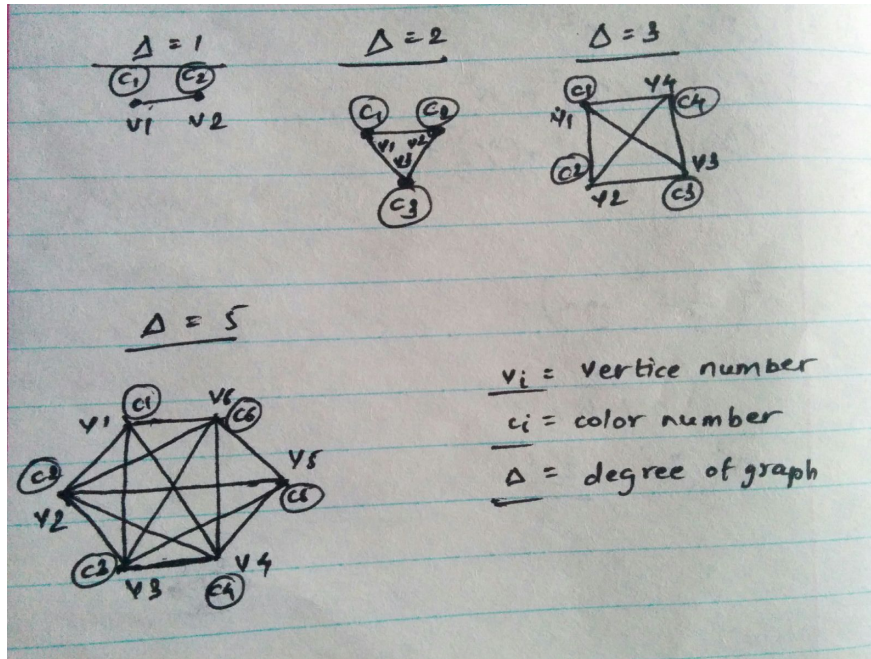 Δ = 1
Δ = 2
Δ = 3
C1 C2
V1 V2
C1 C2
V1 V2
V3
C3
C1 V4
C4
V1
V3
C2
V2 C3
Δ = 5
C1 V6
V1 C6
V5
C2 C5
V2
C3 V3 V4
C4
Vi = vertice number
Ci = color number
Δ = degree of graph